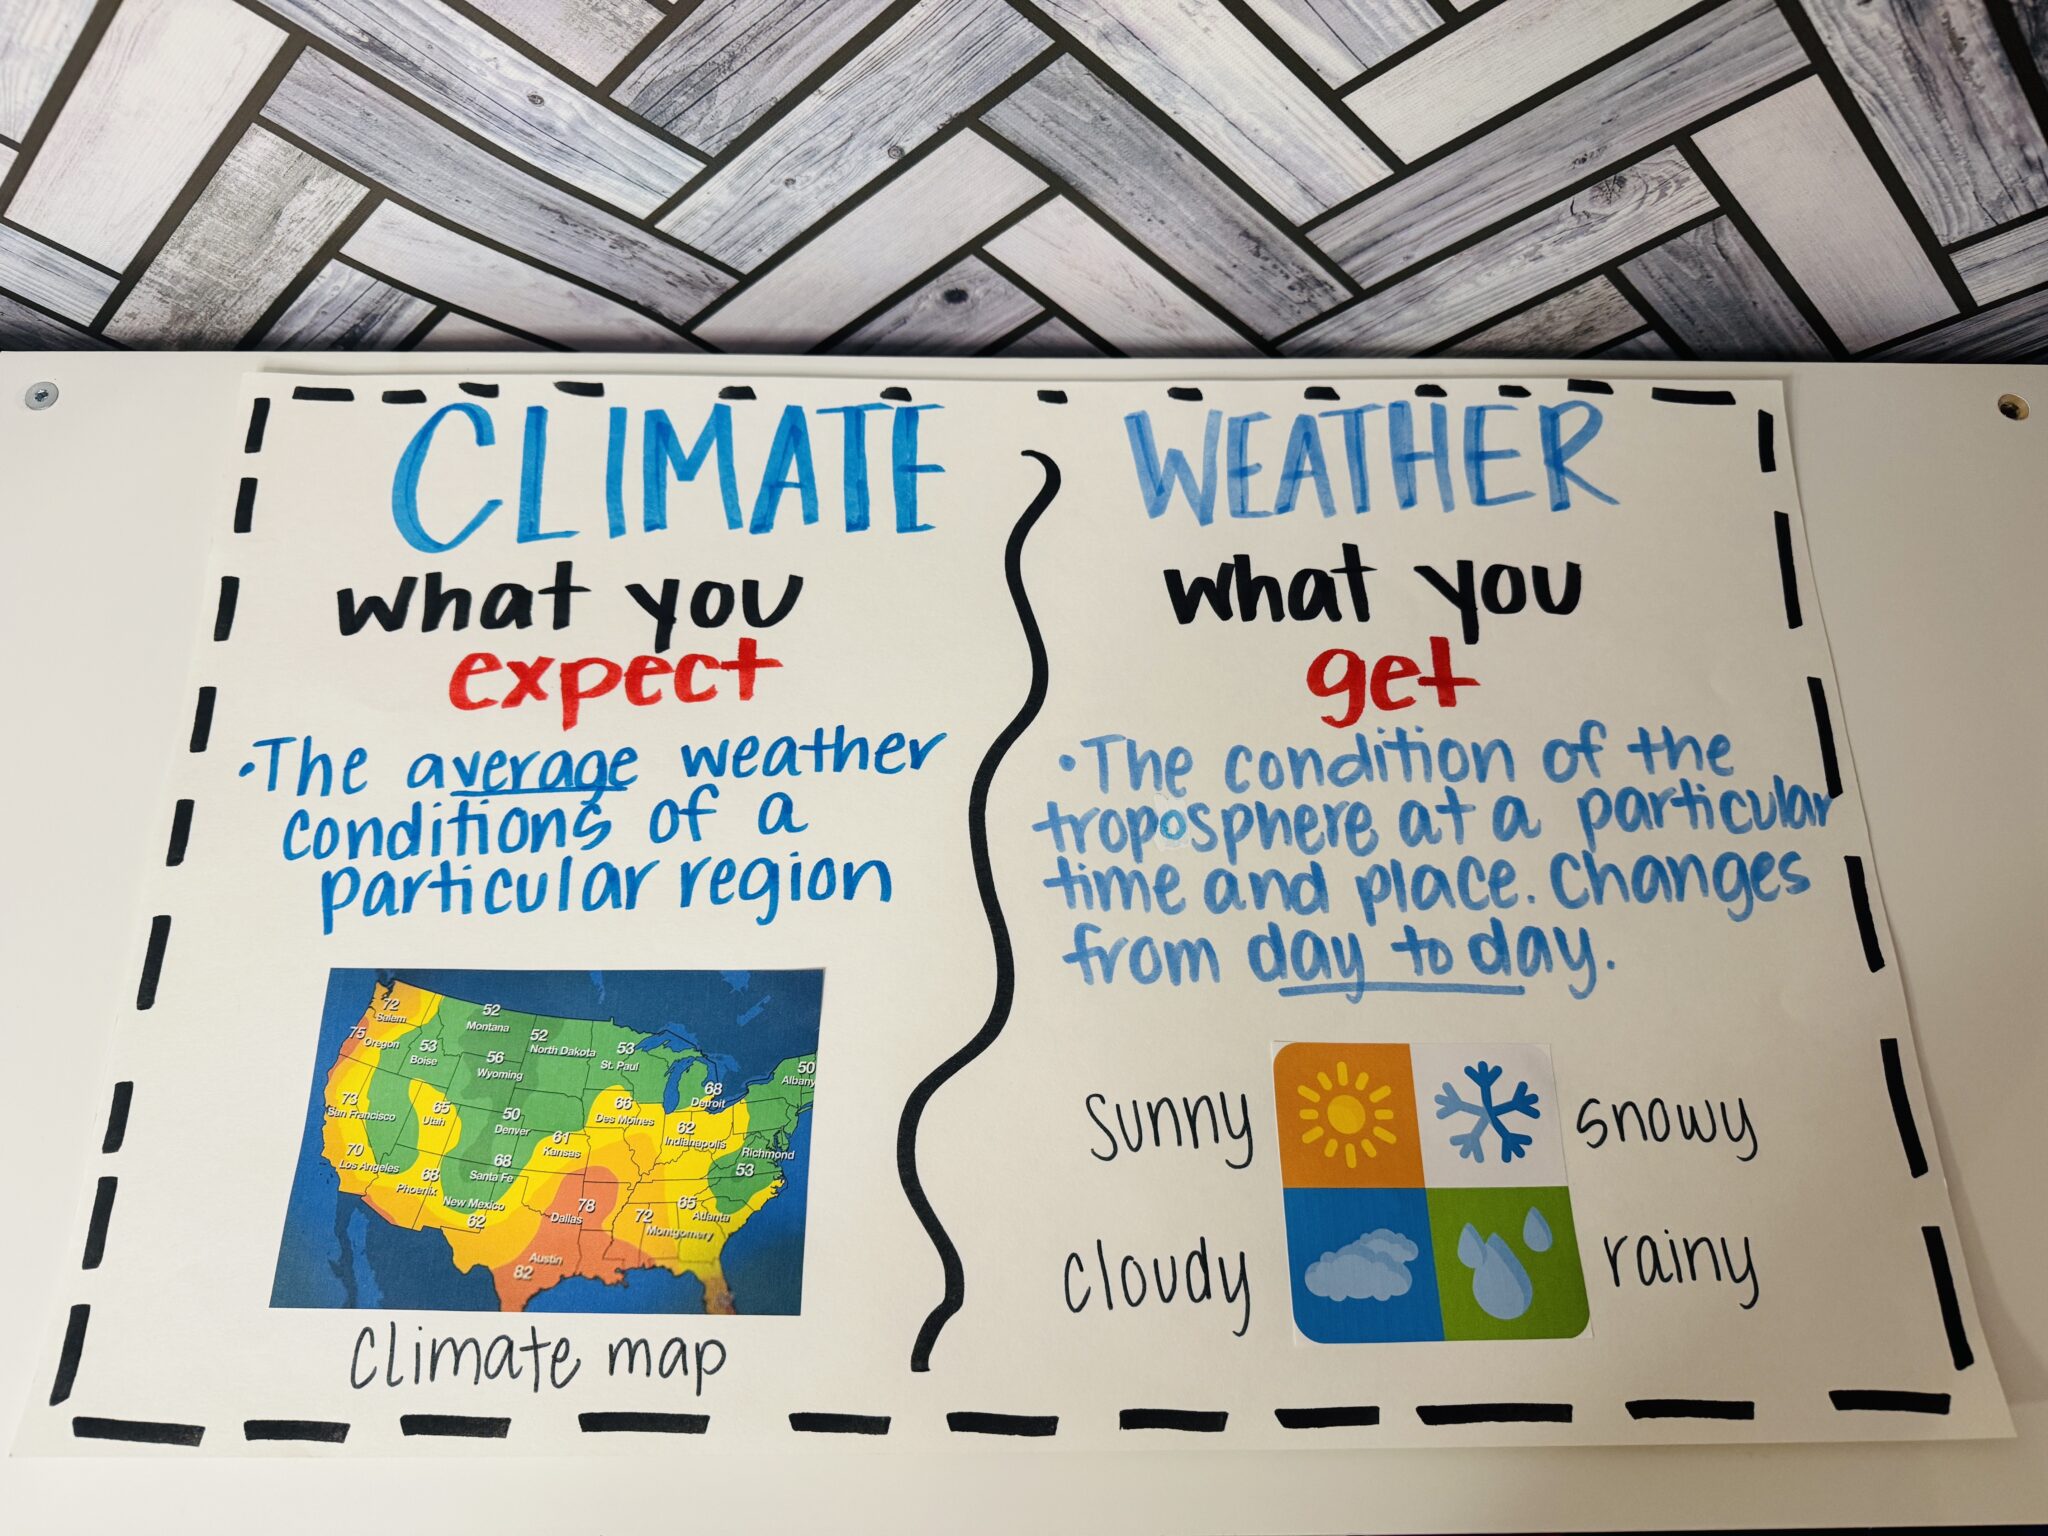 CLIMATE
what you
expect
•The average weather
conditions of a
particular region
72
Salem
75
Oregon
52
Montana
53
Boise
52
North Dakota
53
St. Paul
56
Wyoming
50
Albany
68
Detroit
73
San Francisco
65
Utah
50
Denver
66
Des Moines
62
Indianapolis
61
Kansas
Richmond
53
70
Los Angeles
68
Phoenix
68
Santa Fe
New Mexico
62
78
Dallas
72
Montgomery
65
Atlanta
Austin
82
Climate map
WEATHER
what you
get
•The condition of the
troposphere at a particular
time and place. Changes
from day to day.
sunny
snowy
cloudy
rainy